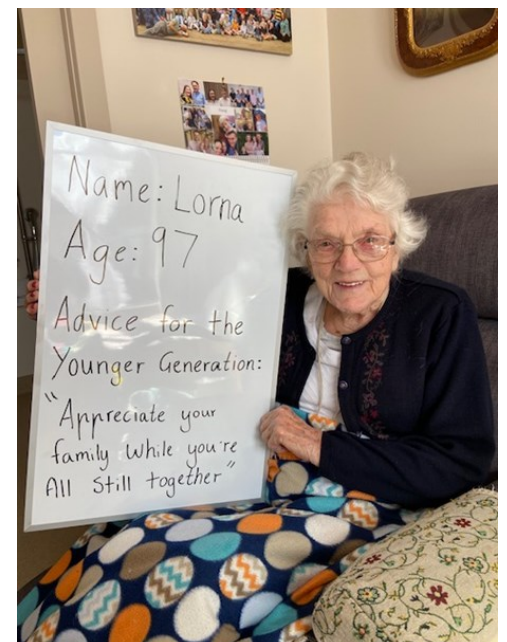 Name: Lorna
Age: 97
Advice for the
Younger Generation:
"Appreciate your
family while you're
All Still together"